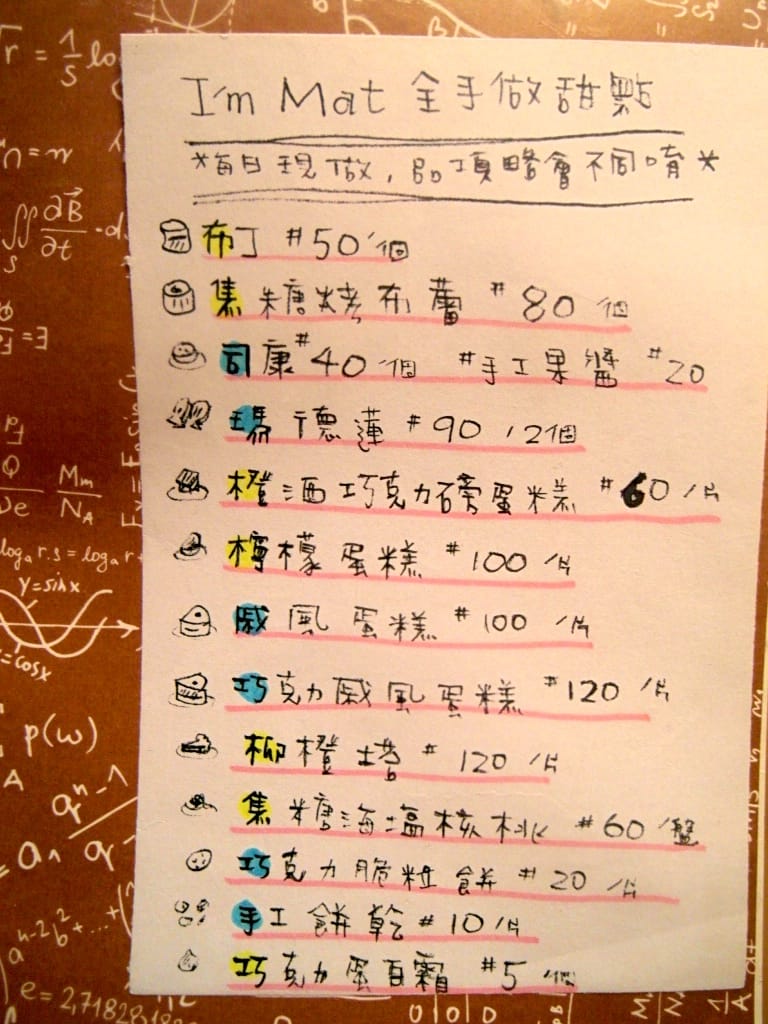 I'm Mat 全手做甜點
*每日現做,品項略會不同唷*
布丁 #50/個
焦糖烤布蕾 #80 個
司康 #40/個 #手工果醬 #20
瑪德蓮 #90 /2個
橙酒巧克力磅蛋糕 #60 /片
檸檬蛋糕 #100 /片
戚風蛋糕 #100 /片
巧克力戚風蛋糕 #120 /片
柳橙塔 #120 /片
焦糖海塩核桃 #60 /盤
巧克力脆粒餅 #20 /片
手工餅乾 #10 /片
巧克力蛋白霜 #5 個
y=sinx
y=cosx
p(w)
Mm
NA
e = 2,718281